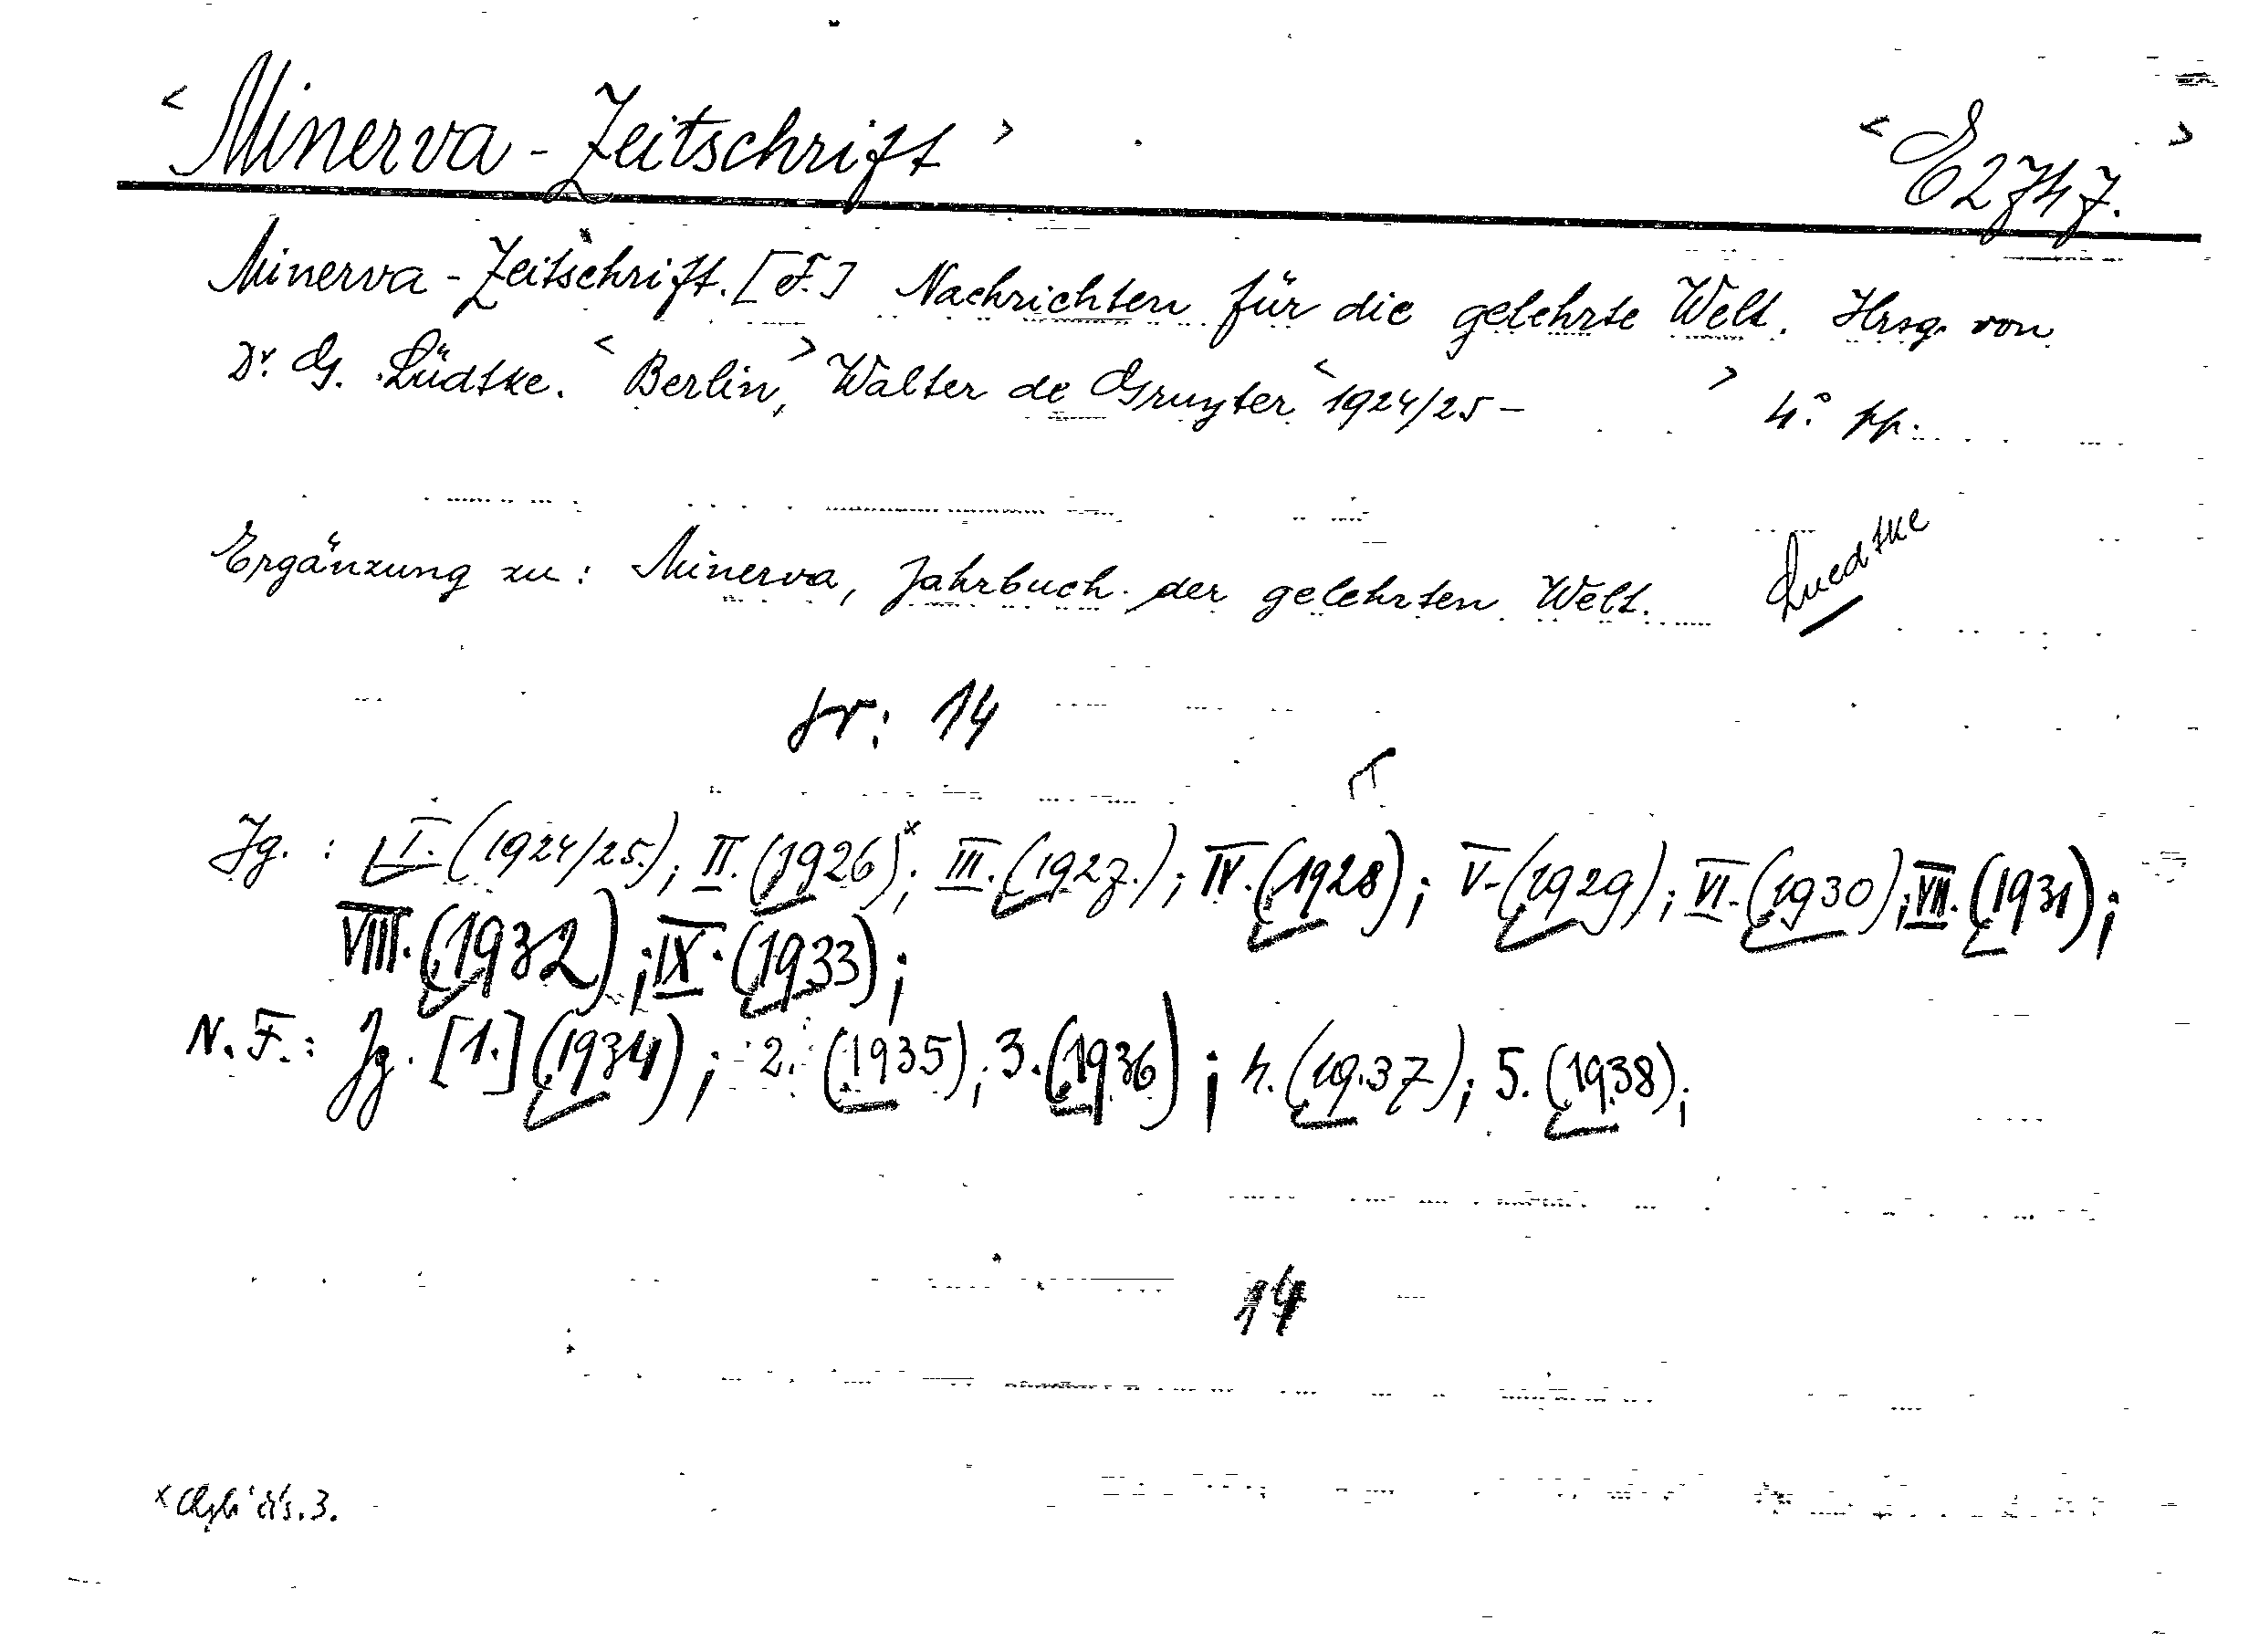 < Minerva-Zeitschrift > < E 2747. >
Minerva-Zeitschrift. [F.] Nachrichten für die gelehrte Welt. Hrsg. von
Dr. G. Lüdtke. < Berlin, > Walter de Gruyter < 1924/25 – > 4.° pp.
Ergänzung zu: Minerva, Jahrbuch der gelehrten Welt. Luedtke
14
Jg. : I. (1924/25.); II. (1926)x; III. (1927.); IV. (1928); V. (1929); VI. (1930); VII. (1931);
VIII. (1932); IX. (1933);
N. F.: Jg. [1.] (1934); 2. (1935); 3. (1936); 4. (1937); 5. (1938);
14
x Chybí čís. 3.